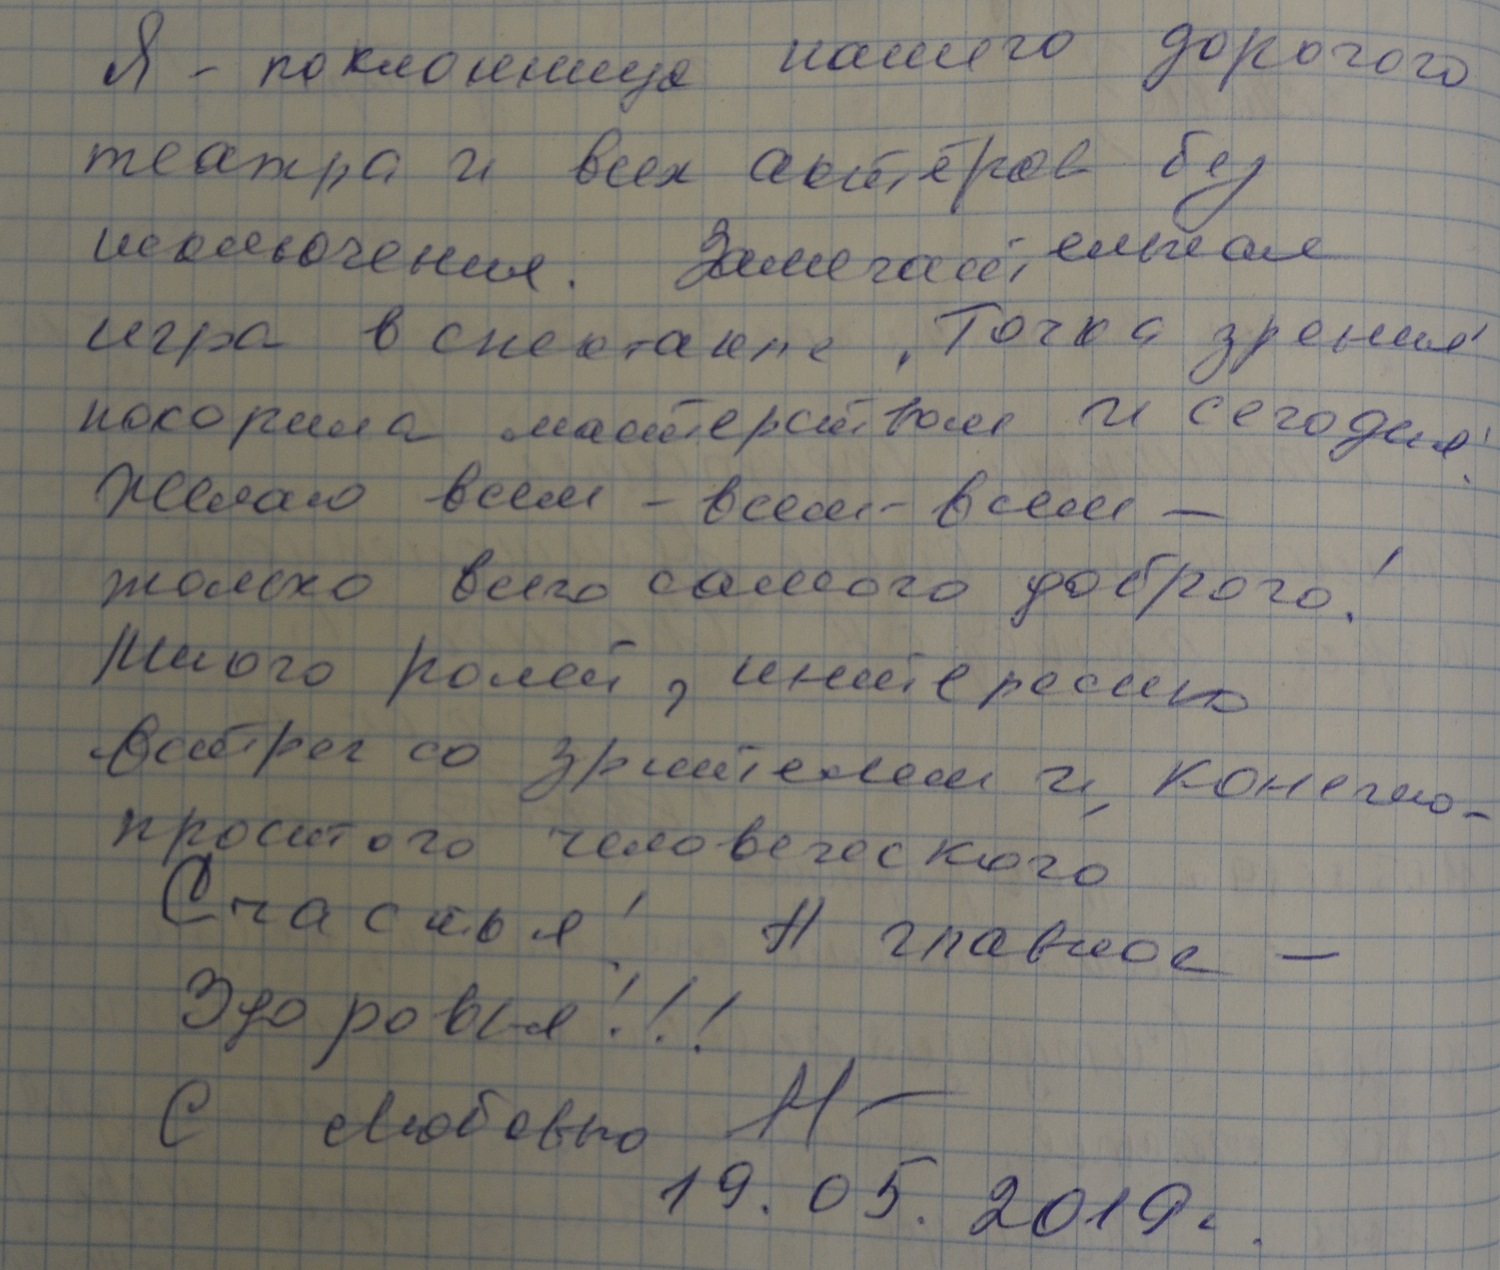 Я - поклонница нашего дорогого
театра и всех актёров без
исключения. Замечательная
игра в спектакле „Точка зрения"
покорила мастерством и сегодня!
Желаю всем - всем - всем -
только всего самого доброго!
Много ролей, интересных
встреч со зрителем и, конечно -
простого человеческого
Счастья! А главное -
Здоровья!!!
С Любовью
19.05.2019г.